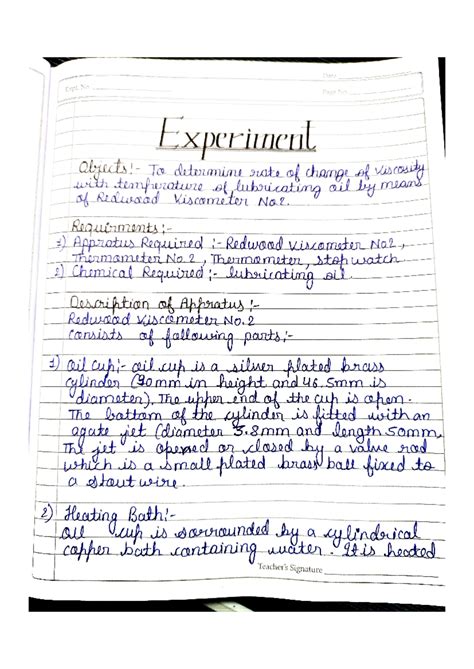 Date
Expt. No.
Page No.
Experiment
Objects:- To determine rate of change of Viscosity
with temprature of lubricating oil by means
of Redwood Viscometer No.2.
Requirments:-
1) Appratus Required :- Redwood Viscometer No2,
Thermometer No.2, Thermometer, stop watch
2) Chemical Required :- lubricating oil.
Description of Appratus:-
Redwood Viscometer No.2
consists of following parts:-
1) Oil cup:- oil cup is a silver plated brass
cylinder (90mm in height and 46.5mm is
diameter). The upper end of the cup is open.
The bottam of the cylinder is fitted with an
agate jet (diameter 3.8mm and length 50mm.
The jet is opened or closed by a valve rod
which is a small plated brass ball fixed to
a stout wire.
2) Heating Bath:-
Oil cup is sorrounded by a cylindrical
copper bath containing water. It is heated
Teacher's Signature